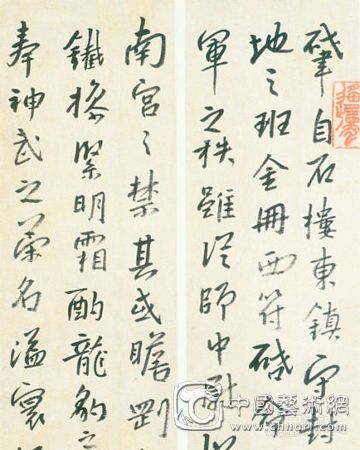 肇自石樓東鎮守封
地之班金冊西符啓
軍之秩雖從師中
南宮之禁其或瞻劉
鐵緊明霜酌龍豹之
奉神武之榮名溢寰
中國藝術網